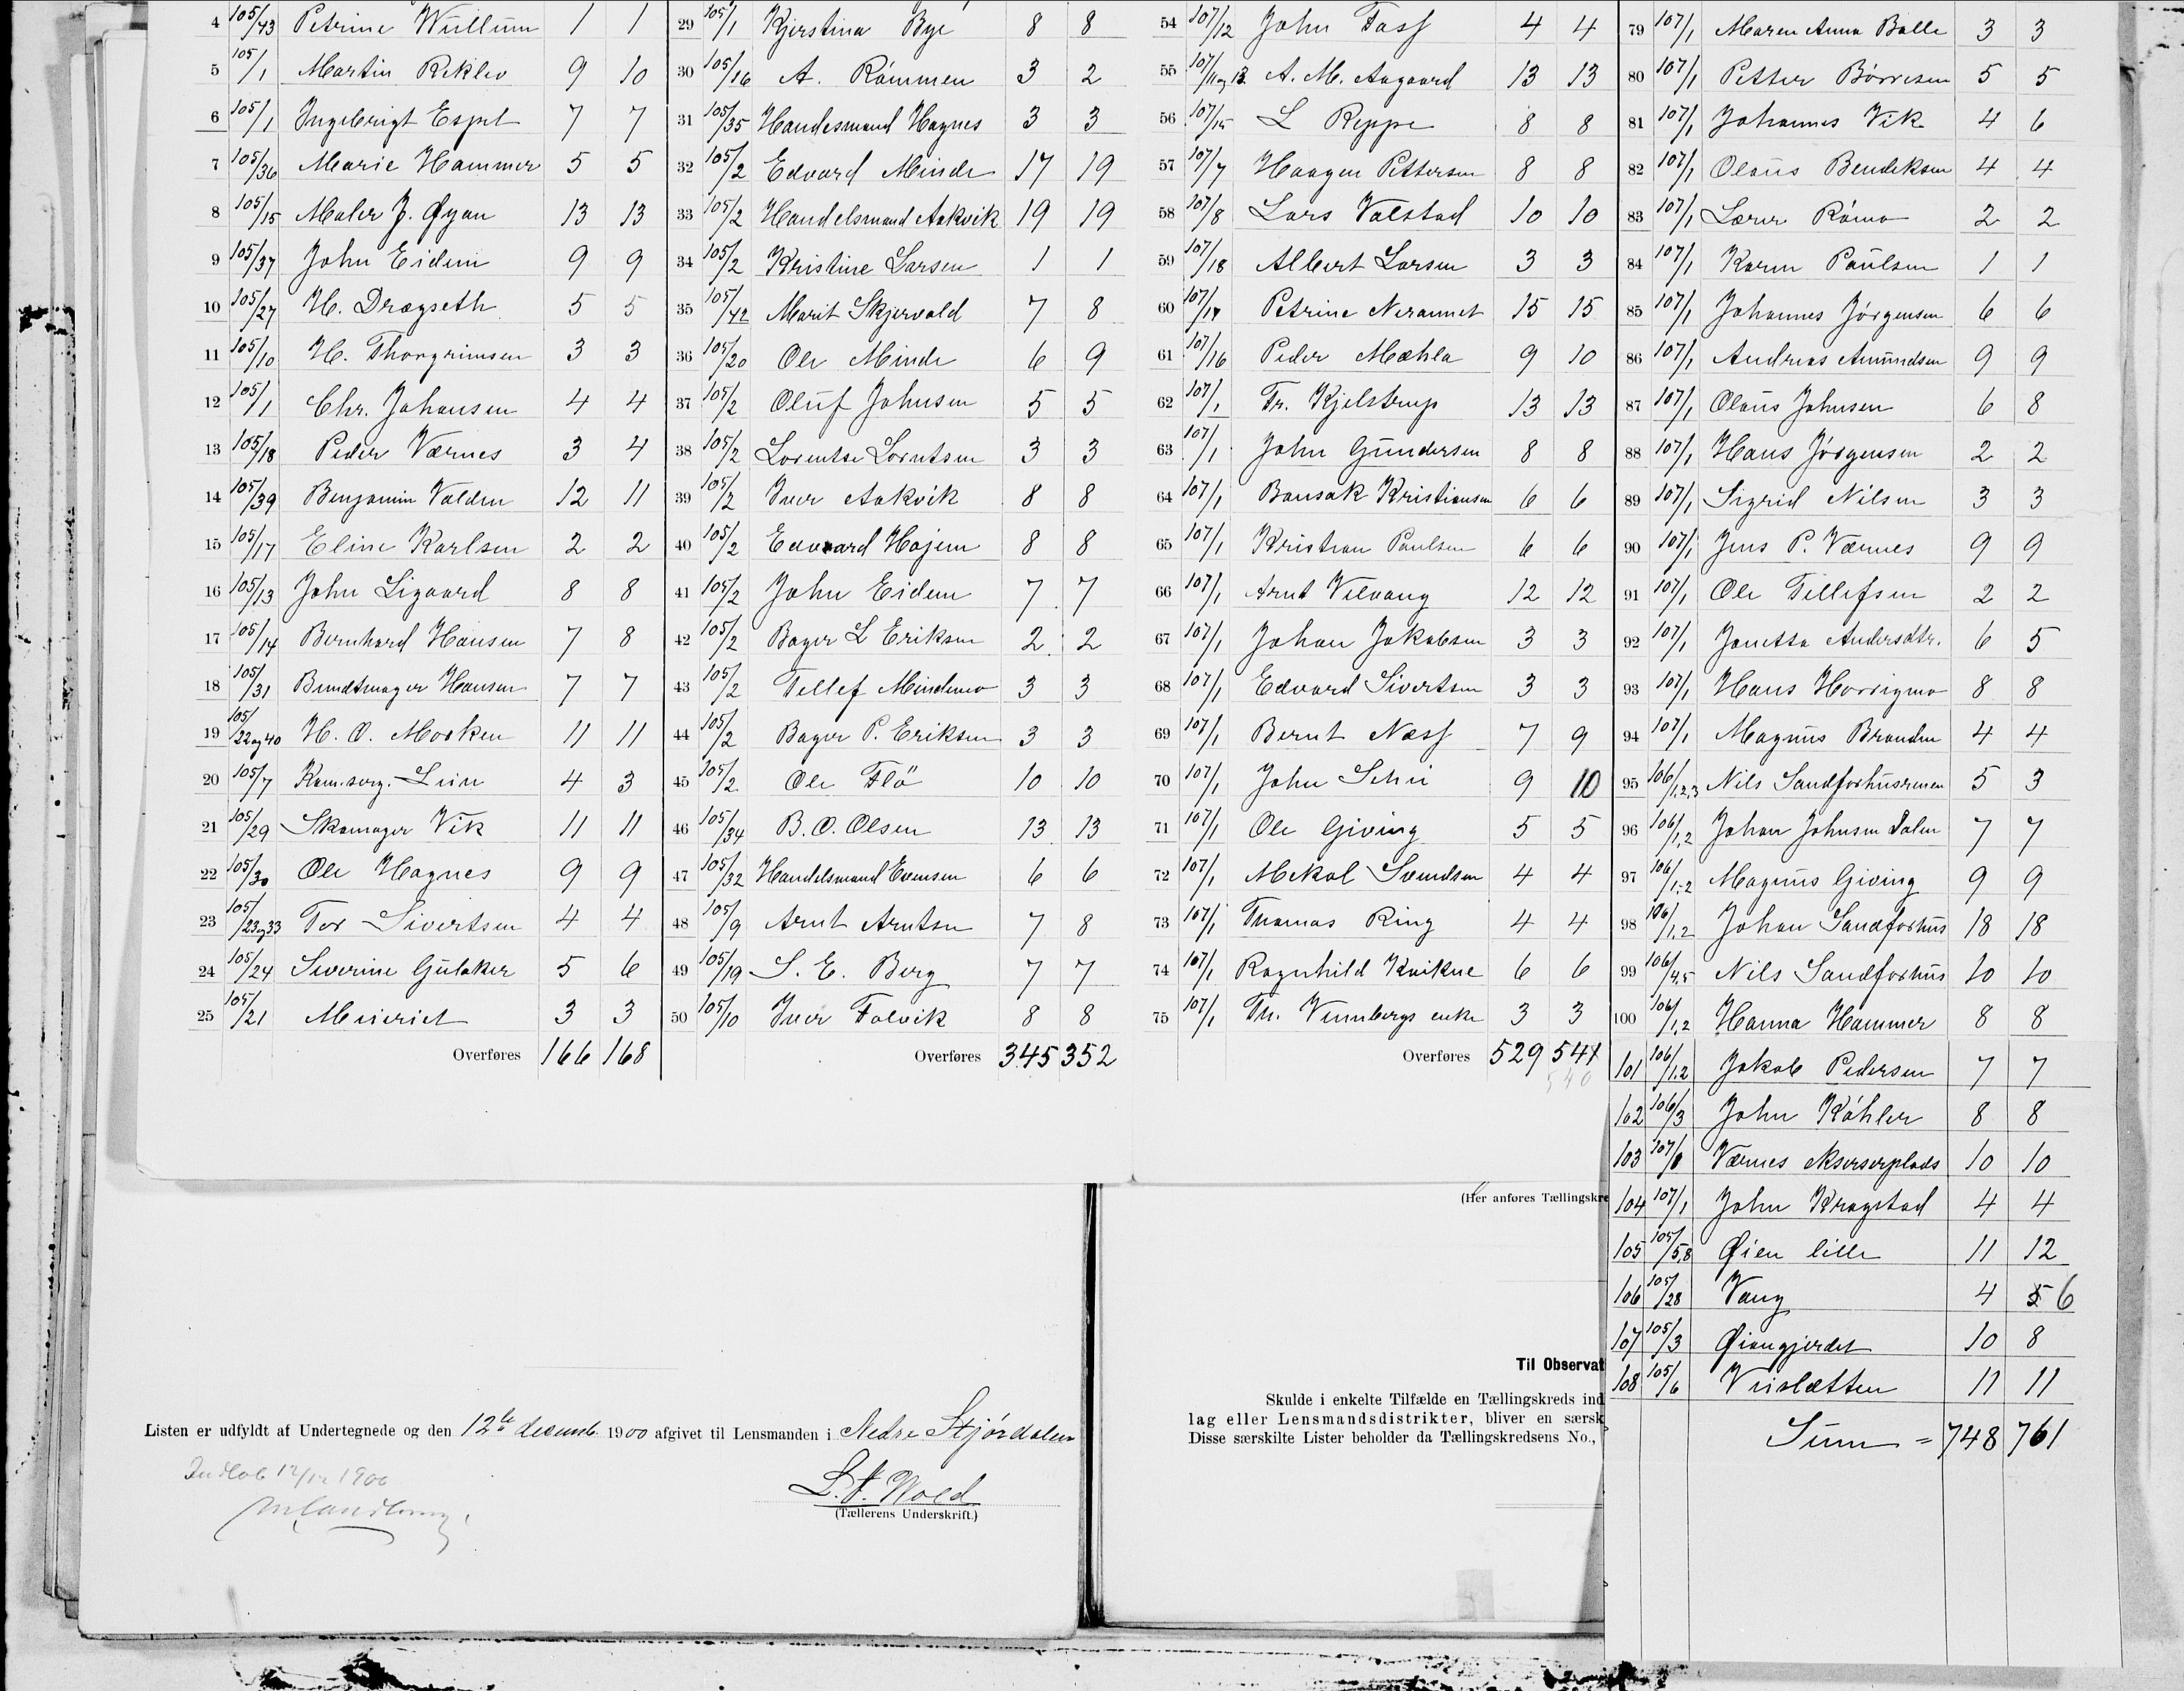 4 105/43 Petrine Wullum 1 1
5 105/1 Martin Reklev 9 10
6 105/1 Ingebrigt Espet 7 7
7 105/36 Marie Hammer 5 5
8 105/15 Maler J. Øyan 13 13
9 105/37 John Eidem 9 9
10 105/27 H. Dragseth 5 5
11 105/10 H. Thorgrimsen 3 3
12 105/1 Chr. Johansen 4 4
13 105/18 Peder Værnes 3 4
14 105/39 Benjamin Valden 12 11
15 105/17 Eline Karlsen 2 2
16 105/13 John Ligaard 8 8
17 105/14 Bernhard Hansen 7 8
18 105/31 Bundtmager Hansen 7 7
19 105/22og40 H. O. Mosken 11 11
20 105/7 Kom.serg. Lien 4 3
21 105/29 Skomager Vik 11 11
22 105/30 Ole Hognes 9 9
23 105/23og33 Tor Sivertsen 4 4
24 105/24 Severine Gulaker 5 6
25 105/21 Meieriet 3 3
Overføres 166 168
29 105/1 Kjerstina Bye 8 8
30 105/16 A. Römmen 3 2
31 105/35 Handesmand Hognes 3 3
32 105/2 Edvard Minde 17 19
33 105/2 Handelsmand Aakvik 19 19
34 105/2 Kristine Larsen 1 1
35 105/42 Marit Skjervold 7 8
36 105/20 Ole Minde 6 9
37 105/2 Oluf Johnsen 5 5
38 105/2 Lorentse Lorntsen 3 3
39 105/2 Iver Aakvik 8 8
40 105/2 Edvard Hojem 8 8
41 105/2 John Eidem 7 7
42 105/2 Bager L Eriksen 2 2
43 105/2 Tellef Mindemo 3 3
44 105/2 Bager P. Eriksen 3 3
45 105/2 Ole Flö 10 10
46 105/34 B. O. Olsen 13 13
47 105/32 Handelsmand Evensen 6 6
48 105/9 Arnt Arntsen 7 8
49 105/19 S. E. Berg 7 7
50 105/10 Iver Folvik 8 8
Overføres 345 352
54 107/12 John Fass 4 4
55 107/11og13 A. M. Aagaard 13 13
56 107/15 L Reppe 8 8
57 107/7 Haagen Pettersen 8 8
58 107/8 Lars Valstad 10 10
59 107/18 Albert Larsen 3 3
60 107/14 Petrine Neraunet 15 15
61 107/16 Peder Mæhla 9 10
62 107/1 Fr. Kjelstrup 13 13
63 107/1 John Gundersen 8 8
64 107/1 Bonsak Kristiansen 6 6
65 107/1 Kristian Paulsen 6 6
66 107/1 Arnt Vilvang 12 12
67 107/1 Johan Jakobsen 3 3
68 107/1 Edvard Sivertsen 3 3
69 107/1 Bernt Næss 7 9
70 107/1 John Schei 9 10
71 107/1 Ole Giving 5 5
72 107/1 Mekal Svendsen 4 4
73 107/1 Thomas Ring 4 4
74 107/1 Ragnhild Kvikne 6 6
75 107/1 Th. Vennbergs enke 3 3
Overføres 529 541
540
79 107/1 Maren Anna Balle 3 3
80 107/1 Petter Börresen 5 5
81 107/1 Johannes Vik 4 6
82 107/1 Olaus Bendiksen 4 4
83 107/1 Lærer Römo 2 2
84 107/1 Karen Paulsen 1 1
85 107/1 Johannes Jörgensen 6 6
86 107/1 Andreas Amundsen 9 9
87 107/1 Olaus Johnsen 6 8
88 107/1 Hans Jörgensen 2 2
89 107/1 Sigrid Nilsen 3 3
90 107/1 Jens P. Værnes 9 9
91 107/1 Ole Tellefsen 2 2
92 107/1 Jonetta Andersdtr. 6 5
93 107/1 Hans Horrigmo 8 8
94 107/1 Magnus Branden 4 4
95 106/1,2,3 Nils Sandforhusrenen 5 3
96 106/1,2 Johan Johnsen Dalen 7 7
97 106/1,2 Magnus Giving 9 9
98 106/1,2 Johan Sandforhus 18 18
99 106/4,5 Nils Sandforhus 10 10
100 106/1,2 Hanna Hammer 8 8
101 106/1,2 Jakob Pedersen 7 7
102 106/3 John Köhler 8 8
103 107/1 Værnes ekserserplads 10 10
104 107/1 John Kragstad 4 4
105 105/5,8 Øien lille 11 12
106 105/28 Vang 4 5 6
107 105/3 Øiangjerdet 10 8
108 105/6 Veisletten 11 11
Sum = 748 761
(Her anføres Tællingskre
Til Observat
Skulde i enkelte Tilfælde en Tællingskreds ind
lag eller Lensmandsdistrikter, bliver en særsk
Disse særskilte Lister beholder da Tællingskredsens No.,
Listen er udfyldt af Undertegnede og den 12te decemb. 1900 afgivet til Lensmanden i Nedre Stjördalen
Indlob 12/12 1900
(Tællerens Underskrift.)